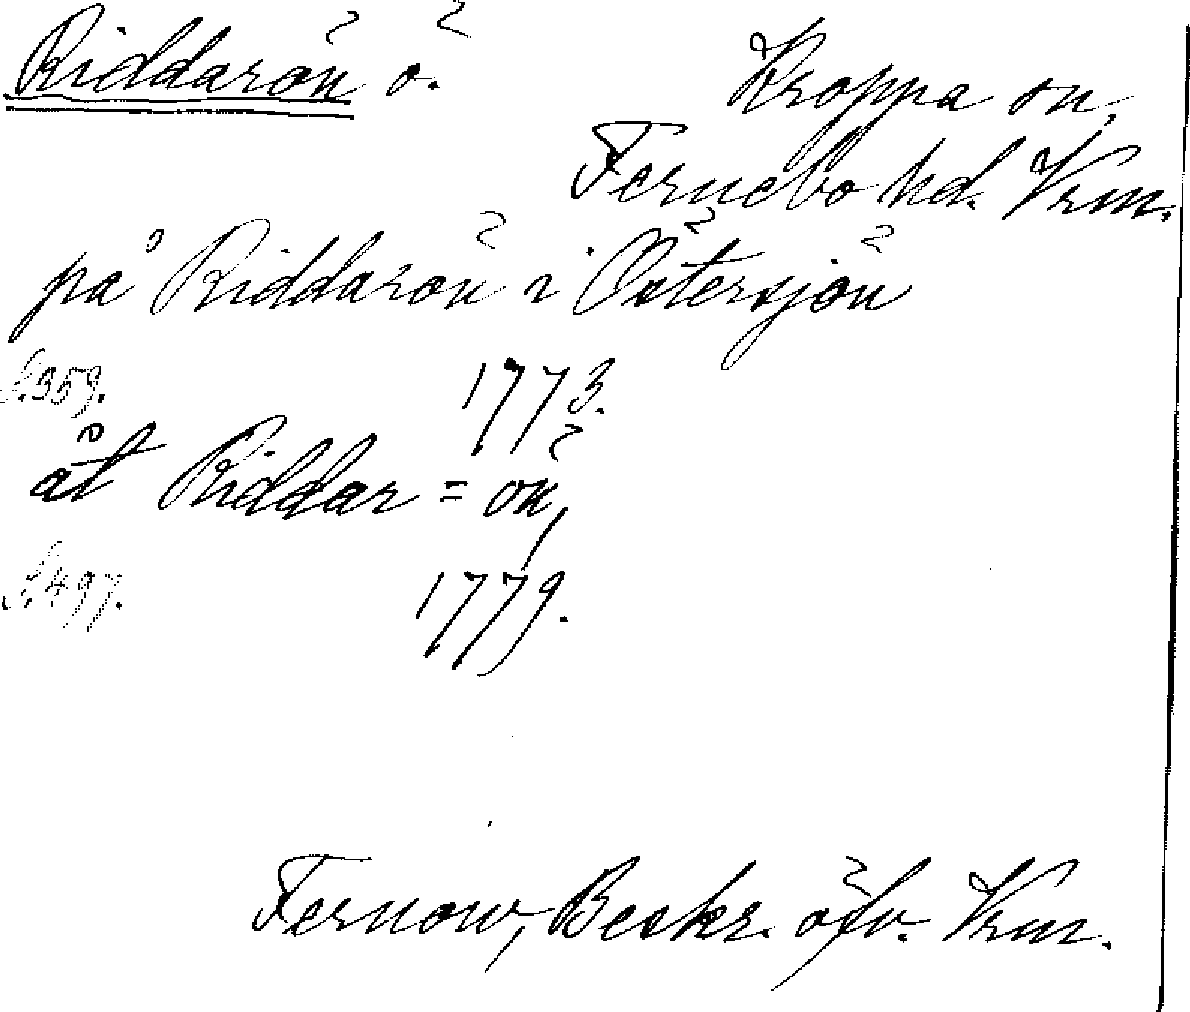 Riddarön ö. Kroppa sn,
Fernebo hd. Vrm.
på Riddarön i Östersjön
S. 359. 1773.
åt Riddar=ön,
S. 497. 1779.
Fernow, Beskr. öfv. Vrm.